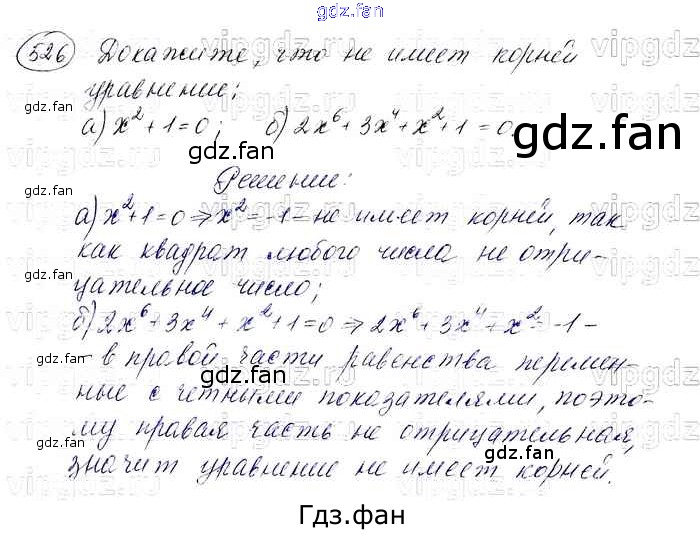 gdz.fan
526 Докажите, что не имеет корней
уравнение:
а) x² + 1 = 0; б) 2x⁶ + 3x⁴ + x² + 1 = 0.
Решение:
а) x² + 1 = 0 ⇒ x² = -1 - не имеет корней, так
как квадрат любого числа не отри-
цательное число;
б) 2x⁶ + 3x⁴ + x² + 1 = 0 ⇒ 2x⁶ + 3x⁴ + x² = -1 -
- в правой части равенства перемен-
ные с четными показателями, поэто-
му правая часть не отрицательная,
значит уравнение не имеет корней.
Гдз.фан